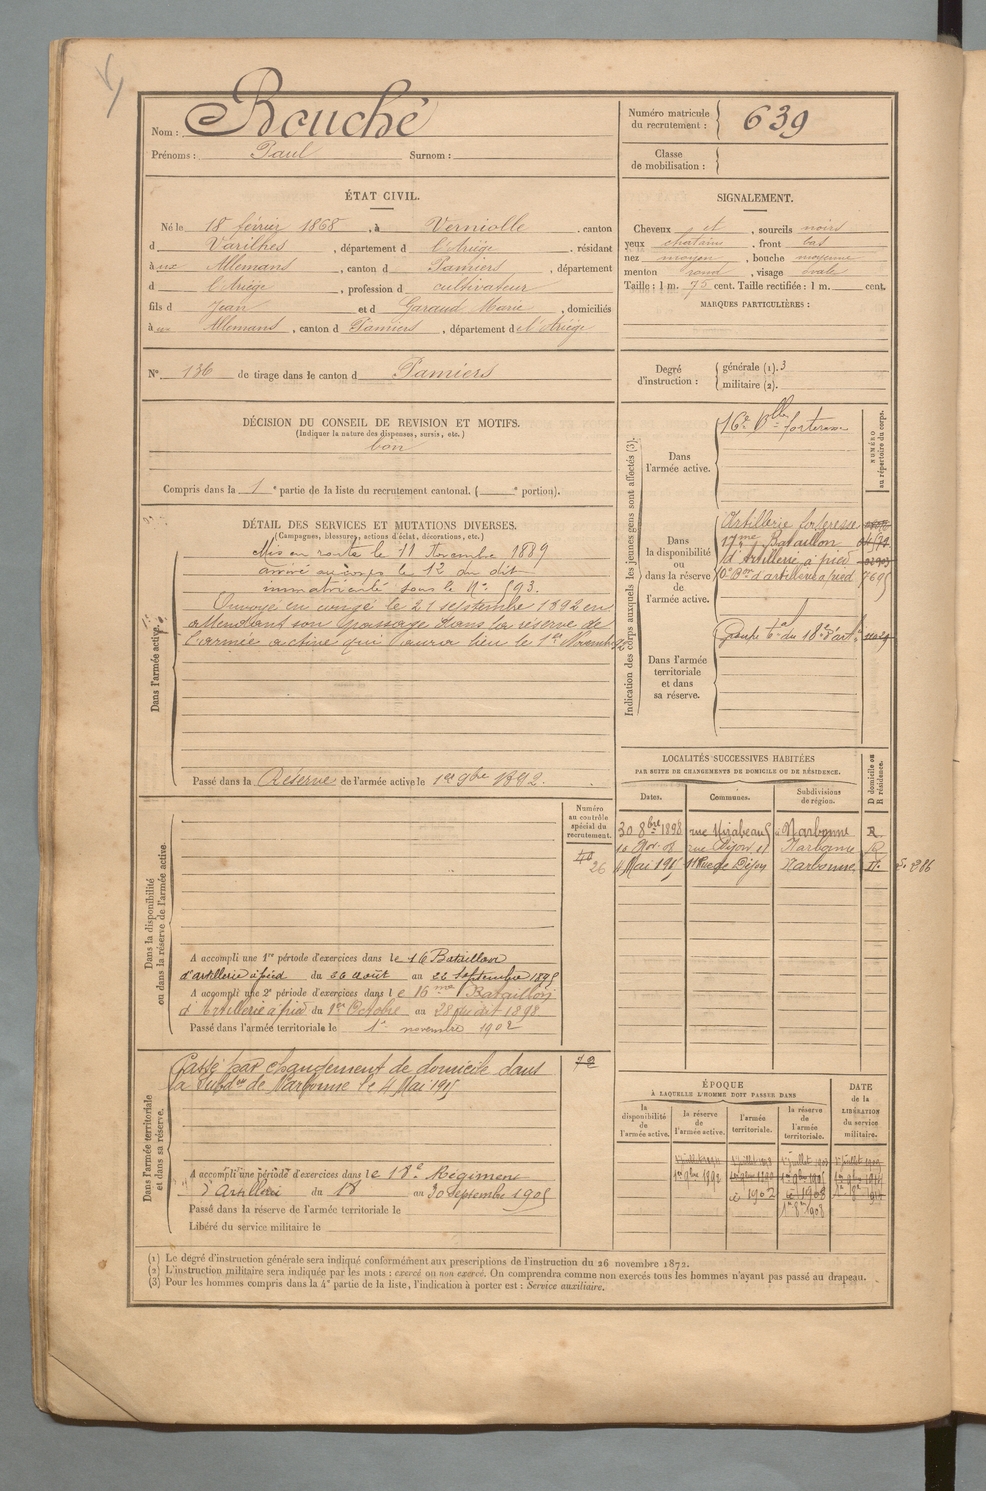 Nom : Bouché
Prénoms : Paul Surnom :
Numéro matricule du recrutement : 639
Classe de mobilisation :
ÉTAT CIVIL.
Né le 18 février 1868, à Verniolle, canton
d Varilhes, département d l'Ariège, résidant
à ux Allemans, canton d Pamiers, département
d l'Ariège, profession d cultivateur
fils d Jean et d Garaud Marie, domiciliés
à ux Allemans, canton d Pamiers, département d e l'Ariège
SIGNALEMENT.
Cheveux et, sourcils noirs
yeux chatains, front bas
nez moyen, bouche moyenne
menton rond, visage ovale
Taille : 1 m. 75 cent. Taille rectifiée : 1 m. cent.
MARQUES PARTICULIÈRES :
N° 136 de tirage dans le canton d Pamiers
Degré d'instruction : générale (1). 3
militaire (2).
DÉCISION DU CONSEIL DE REVISION ET MOTIFS.
(Indiquer la nature des dispenses, sursis, etc.)
bon
Compris dans la 1e partie de la liste du recrutement cantonal. ( e portion).
DÉTAIL DES SERVICES ET MUTATIONS DIVERSES.
(Campagnes, blessures, actions d'éclat, décorations, etc.)
Dans l'armée active.
Mis en route le 11 Novembre 1889
arrivé au corps le 12 du dit
immatriculé sous le N° 593.
Envoyé en congé le 21 septembre 1892 en
attendant son passage dans la réserve de
l'armée active qui aura lieu le 1er Novembre 92
Passé dans la Réserve de l'armée active le 1er 9bre 1892.
Indication des corps auxquels les jeunes gens sont affectés (3).
NUMÉRO au répertoire du corps.
Dans l'armée active.
16e Blle forteresse
Dans la disponibilité ou dans la réserve de l'armée active.
Artillerie forteresse
17me Bataillon
d'Artillerie à pied
d'artillerie à pied 7695
Dans l'armée territoriale et dans sa réserve.
Groupe tal du 18e d'arte
LOCALITÉS SUCCESSIVES HABITÉES
PAR SUITE DE CHANGEMENTS DE DOMICILE OU DE RÉSIDENCE.
Dates. Communes. Subdivisions de région. D domicile ou R résidence.
30 8bre 1898 rue Mirabeau 5 à Narbonne R
rue Dijon 11 Narbonne R
4 Mai 1905 11 Rue de Dijon Narbonne D.
Numéro au contrôle spécial du recrutement.
26
Dans la disponibilité ou dans la réserve de l'armée active.
A accompli une 1re période d'exercices dans le 16 Bataillon
d'artillerie à pied du 30 août au 26 septembre 1895
A accompli une 2e période d'exercices dans l e 16me Bataillon
d'Artillerie à pied du 1er Octobre au 28 du dit 1898
Passé dans l'armée territoriale le 1er novembre 1902
Dans l'armée territoriale et dans sa réserve.
Passé par changement de domicile dans
la Subdon de Narbonne le 4 Mai 1905
A accompli une période d'exercices dans le 18e Régiment
d'Artillerie du 18 au 30 septembre 1905
Passé dans la réserve de l'armée territoriale le
Libéré du service militaire le
ÉPOQUE
À LAQUELLE L'HOMME DOIT PASSER DANS
DATE de la LIBÉRATION du service militaire.
la disponibilité de l'armée active. la réserve de l'armée active. l'armée territoriale. la réserve de l'armée territoriale.
1er 9bre 1892
1902
1908
1908
(1) Le degré d'instruction générale sera indiqué conformément aux prescriptions de l'instruction du 26 novembre 1872.
(2) L'instruction militaire sera indiquée par les mots : exercé ou non exercé. On comprendra comme non exercés tous les hommes n'ayant pas passé au drapeau.
(3) Pour les hommes compris dans la 4e partie de la liste, l'indication à porter est : Service auxiliaire.